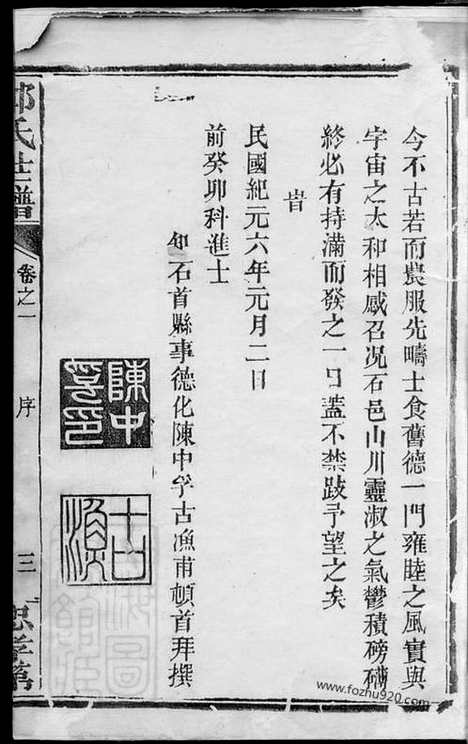 今不古若而農服先疇士食舊德一門雍睦之風實與
宇宙之太和相感召况石邑山川靈淑之氣鬱積磅礴
終必有持滿而發之一日蓋不禁跂予望之矣
旹
民國紀元六年元月二日
前癸卯科進士
知石首縣事德化陳中孚古漁甫頓首拜撰
陳中孚印
古漁
氏世譜
卷之一
序
三
忠孝
www.fozhu920.com